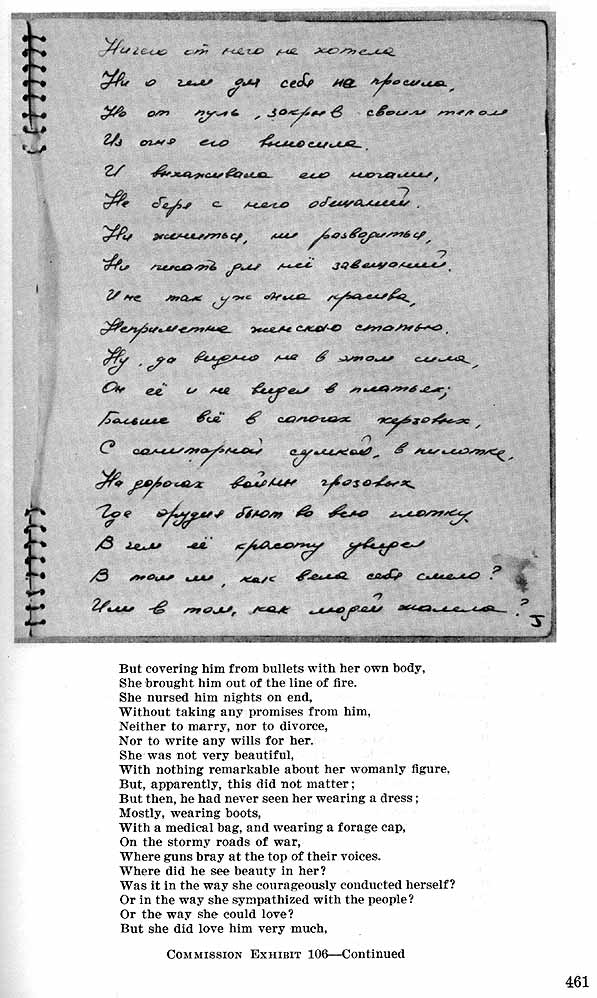 Ничего от него не хотела
Ни о чем для себя не просила,
Но от пуль, закрыв своим телом
Из огня его выносила.
И выхаживала его ночами,
Не беря с него обещаний.
Ни жениться, ни разводиться,
Ни писать для неё завещаний.
И не так уж она красива,
Неприметна женскою статью.
Ну, да видно не в этом сила,
Он её и не видел в платьях;
Больше всё в сапогах кирзовых,
С санитарной сумкой, в пилотке,
На дорогах войны грозовых
Где орудия бьют во всю глотку.
В чем её красоту увидел
В том ли, как вела себя смело?
Или в том, как людей жалела?
J
But covering him from bullets with her own body,
She brought him out of the line of fire.
She nursed him nights on end,
Without taking any promises from him,
Neither to marry, nor to divorce,
Nor to write any wills for her.
She was not very beautiful,
With nothing remarkable about her womanly figure.
But, apparently, this did not matter;
But then, he had never seen her wearing a dress;
Mostly, wearing boots,
With a medical bag, and wearing a forage cap,
On the stormy roads of war,
Where guns bray at the top of their voices.
Where did he see beauty in her?
Was it in the way she courageously conducted herself?
Or in the way she sympathized with the people?
Or the way she could love?
But she did love him very much,
COMMISSION EXHIBIT 106—Continued
461